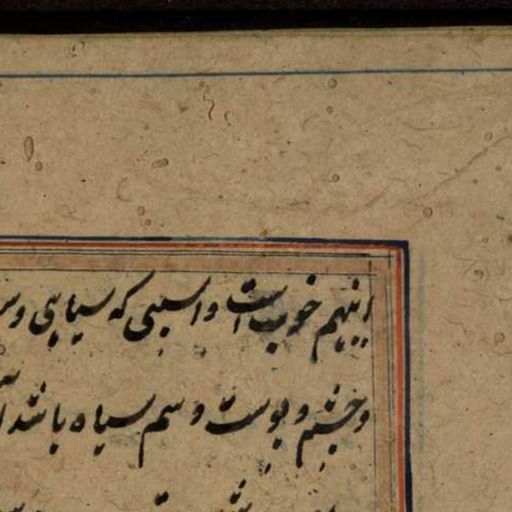 اینهم خوب است و اسبی که سیاهی و
و چشم و پوست و سم سیاه باشد